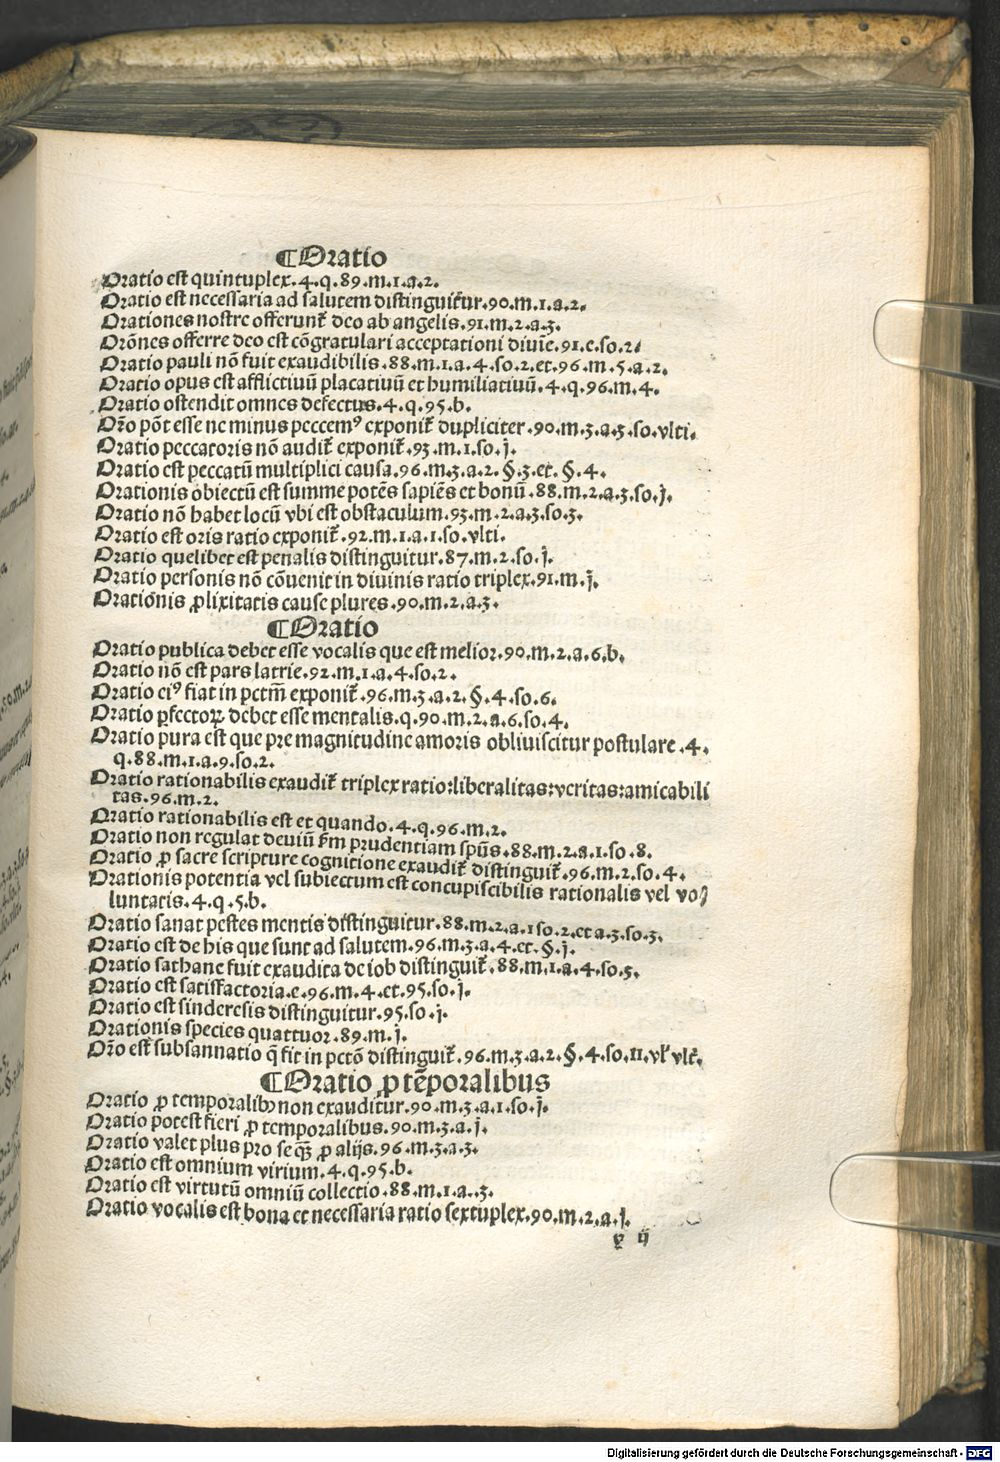 ⸿Oratio
Oratio est quintuplex.4.q.89.m.1.a.2.
Oratio est necessaria ad salutem distinguit᷑ur.90.m.1.a.2.
Orationes nostre offerunt᷑ deo ab angelis.91.m.2.a.3.
Orōnes offerre deo est cōgratulari acceptationi diuīe.91.e.so.2.
Oratio pauli nō fuit exaudibilis.88.m.1.a.4.so.2.et.96.m.5.a.2.
Oratio opus est afflictiuū placatiuū et humiliatiuū.4.q.96.m.4.
Oratio ostendit omnes defectus.4.q.95.b.
Or̄o pōt esse ne minus peccemꝰ exponit᷑ dupliciter.90.m.3.a.5.so.vlti.
Oratio peccatoris nō audit᷑ exponit᷑.93.m.1.so.j.
Oratio est peccatū multiplici causa.96.m.3.a.2.§.3.et.§.4.
Orationis obiectū est summe potēs sapiēs et bonū.88.m.2.a.3.so.j.
Oratio nō habet locū vbi est obstaculum.93.m.2.a.3.so.3.
Oratio est oris ratio exponit᷑.92.m.1.a.1.so.vlti.
Oratio quelibet est penalis distinguitur.87.m.2.so.j.
Oratio personis nō cōuenit in diuinis ratio triplex.91.m.j.
Orationis ꝓlixitatis cause plures.90.m.2.a.3.
⸿Oratio
Oratio publica debet esse vocalis que est melior.90.m.2.a.6.b.
Oratio nō est pars latrie.92.m.1.a.4.so.2.
Oratio eiꝰ fiat in pctm̄ exponit᷑.96.m.3.a.2.§.4.so.6.
Oratio ꝑfectoꝝ debet esse mentalis.q.90.m.2.a.6.so.4.
Oratio pura est que pre magnitudine amoris obliuiscitur postulare.4.
q.88.m.1.a.9.so.2.
Oratio rationabilis exaudit᷑ triplex ratio:liberalitas:veritas:amicabili
tas.96.m.2.
Oratio rationabilis est et quando.4.q.96.m.2.
Oratio non regulat deuiū fm̄ prudentiam spūs.88.m.2.a.1.so.8.
Oratio ꝓ sacre scripture cognitione exaudit᷑ distinguit᷑.96.m.2.so.4.
Orationis potentia vel subiectum est concupiscibilis rationalis vel vo/
luntatis.4.q.5.b.
Oratio sanat pestes mentis distinguitur.88.m.2.a.1so.2.et a.3.so.3.
Oratio est de his que sunt ad salutem.96.m.3.a.4.et.§.j.
Oratio sathane fuit exaudita de iob distinguit᷑.88.m.1.a.4.so.5.
Oratio est satisfactoria.e.96.m.4.et.95.so.j.
Oratio est sinderesis distinguitur.95.so.j.
Orationis species quattuor.89.m.j.
Or̄o est subsannatio q̄ fit in pctō distinguit᷑.96.m.3.a.2.§.4.so.11.vl' vlt᷑.
⸿Oratio ꝓ tēporalibus
Oratio ꝓ temporalibꝰ non exauditur.90.m.3.a.1.so.j.
Oratio potest fieri ꝓ temporalibus.90.m.3.a.j.
Oratio valet plus pro se q̄ꝫ ꝓ alijs.96.m.3.a.3.
Oratio est omnium virium.4.q.95.b.
Oratio est virtutū omniū collectio.88.m.1.a.3.
Oratio vocalis est bona et necessaria ratio sextuplex.90.m.2.a.j.
ij
Digitalisierung gefördert durch die Deutsche Forschungsgemeinschaft - DFG